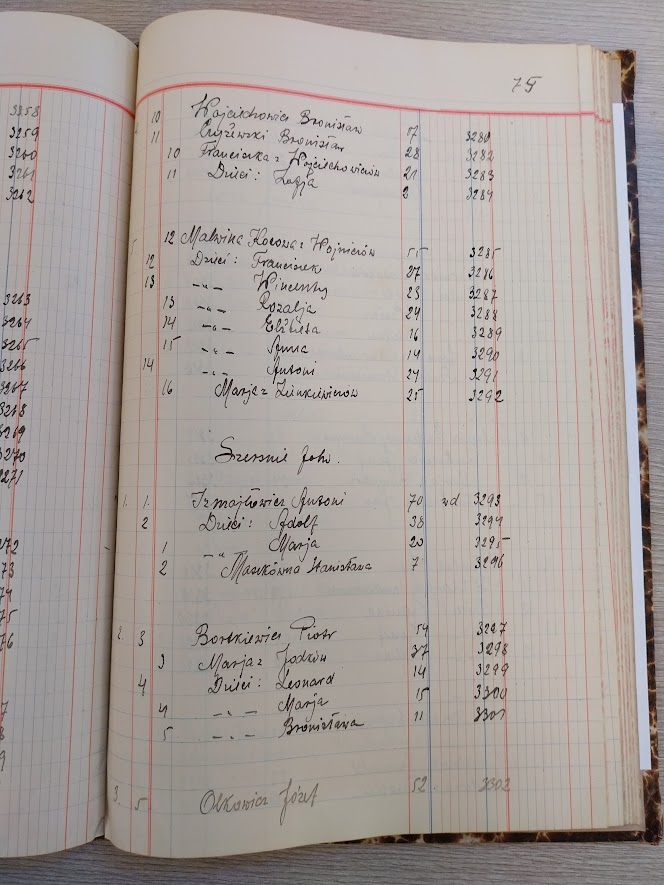 75
3258
3259
3260
3261
3262
3263
3264
3265
3266
3267
3268
3269
3270
3271
272
73
74
75
76
7
8
9
10 Wojciechowicz Bronisław 17 3280
11 Czyżewski Bronisław 28 3282
10 Franciszka z Wojciechowiczów 21 3283
11 Dzieci: Zofja 2 3284
5 12 Malwina Kocowa z Wojniczów 55 3285
12 Dzieci: Franciszek 27 3286
13 -„- Wincenty 23 3287
13 -„- Rozalja 24 3288
14 -„- Elżbieta 16 3289
15 -„- Anna 14 3290
14 -„- Antoni 24 3291
16 Marja z Zienkiewiczów 25 3292
folw.
1. 1. Izmajłowicz Antoni 70 wd 3293
2 Dzieci: Adolf 38 3294
1 -„- Marja 20 3295
2 Maszkówna Stanisława 7 3296
2. 3 Bortkiewicz Piotr 54 3297
3 Marja z Jodków 37 3298
4 Dzieci: Leonard 14 3299
4 -„- Marja 15 3300
5 -„- Bronisława 11 3301
3. 5 Olkowicz Józef 52 3302